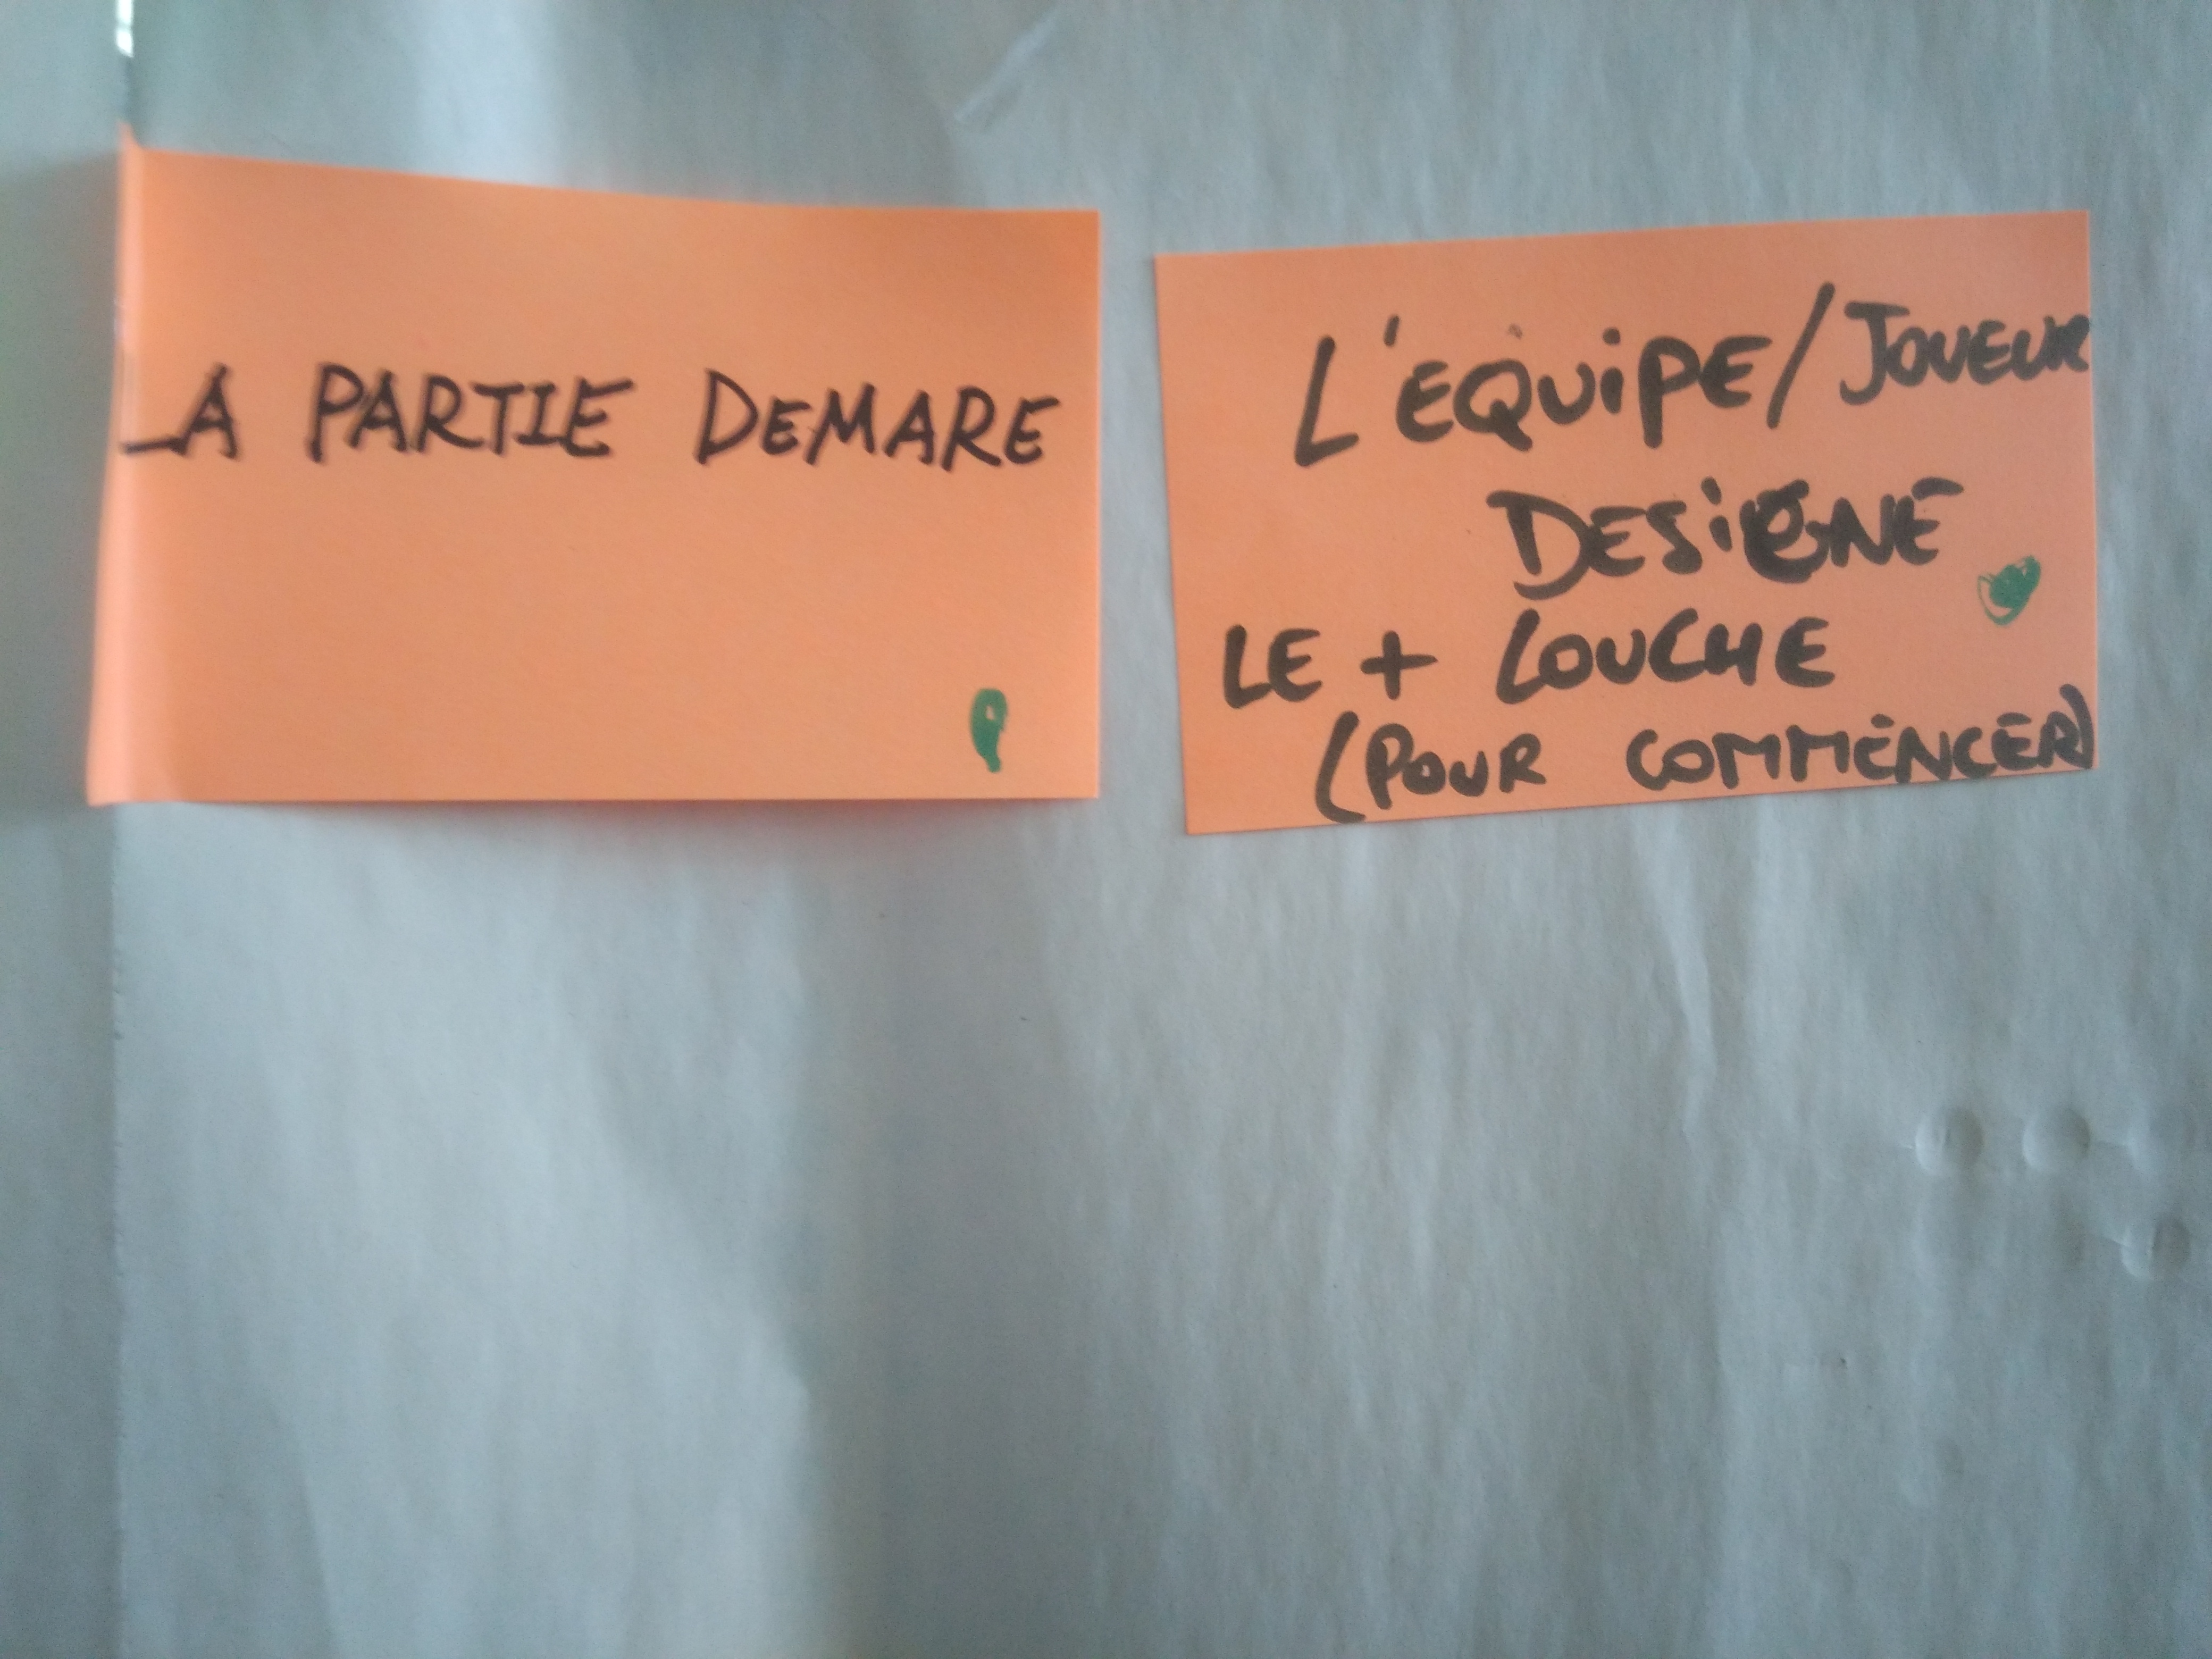 LA PARTIE DEMARE
L'EQUIPE/JOUEUR
DESIGNE
LE + LOUCHE
(POUR COMMENCER)